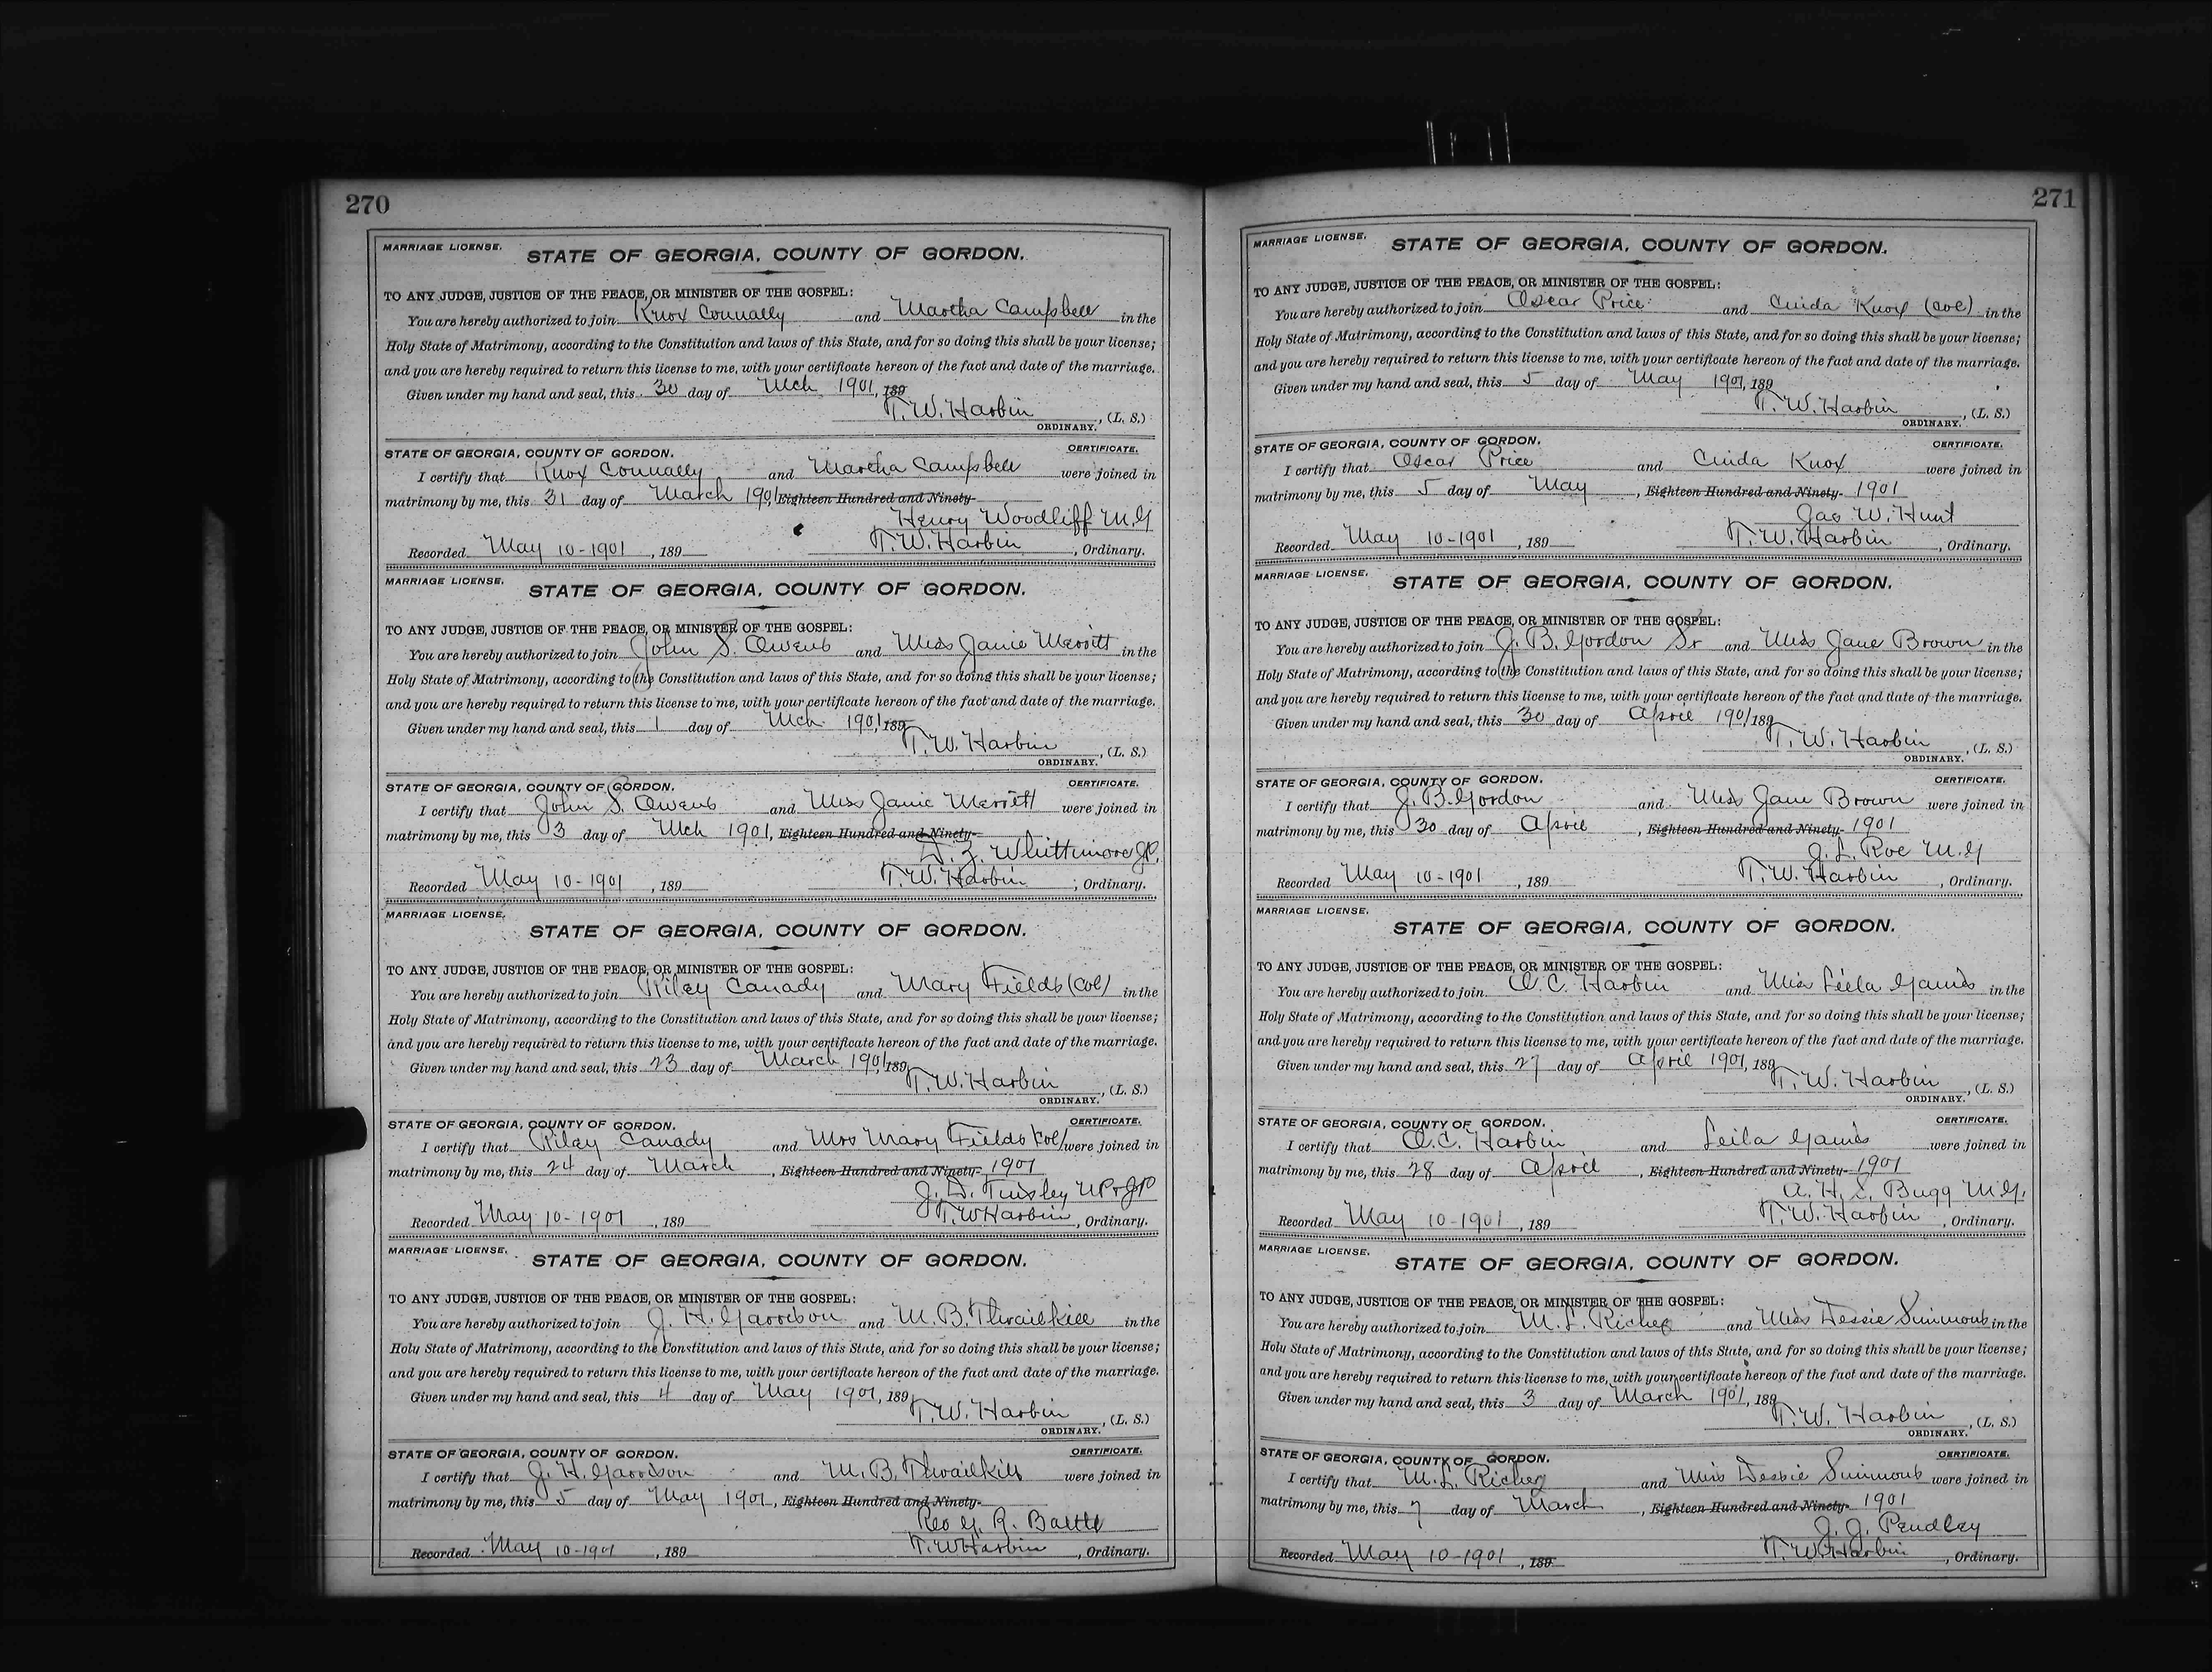 270
MARRIAGE LICENSE.
STATE OF GEORGIA, COUNTY OF GORDON.
TO ANY JUDGE, JUSTICE OF THE PEACE, OR MINISTER OF THE GOSPEL:
You are hereby authorized to join Knox Connally and Martha Campbell in the
Holy State of Matrimony, according to the Constitution and laws of this State, and for so doing this shall be your license;
and you are hereby required to return this license to me, with your certificate hereon of the fact and date of the marriage.
Given under my hand and seal, this 30 day of Mch 1901, 189
T. W. Harbin, (L. S.)
ORDINARY.
STATE OF GEORGIA, COUNTY OF GORDON. CERTIFICATE.
I certify that Knox Connally and Martha Campbell were joined in
matrimony by me, this 31 day of March 1901 Eighteen Hundred and Ninety-
Henry Woodliff M.G
Recorded May 10-1901, 189 T. W. Harbin, Ordinary.
MARRIAGE LICENSE.
STATE OF GEORGIA, COUNTY OF GORDON.
TO ANY JUDGE, JUSTICE OF THE PEACE, OR MINISTER OF THE GOSPEL:
You are hereby authorized to join John S. Owens and Miss Janie Merritt in the
Holy State of Matrimony, according to the Constitution and laws of this State, and for so doing this shall be your license;
and you are hereby required to return this license to me, with your certificate hereon of the fact and date of the marriage.
Given under my hand and seal, this 1 day of Mch 1901, 189
T. W. Harbin, (L. S.)
ORDINARY.
STATE OF GEORGIA, COUNTY OF GORDON. CERTIFICATE.
I certify that John S. Owens and Miss Janie Merritt were joined in
matrimony by me, this 3 day of Mch 1901, Eighteen Hundred and Ninety-
Whittimore JP.
Recorded May 10-1901, 189 T. W. Harbin, Ordinary.
MARRIAGE LICENSE.
STATE OF GEORGIA, COUNTY OF GORDON.
TO ANY JUDGE, JUSTICE OF THE PEACE, OR MINISTER OF THE GOSPEL:
You are hereby authorized to join Riley Canady and Mary Fields (Col) in the
Holy State of Matrimony, according to the Constitution and laws of this State, and for so doing this shall be your license;
and you are hereby required to return this license to me, with your certificate hereon of the fact and date of the marriage.
Given under my hand and seal, this 23 day of March 1901, 189
T. W. Harbin, (L. S.)
ORDINARY.
STATE OF GEORGIA, COUNTY OF GORDON. CERTIFICATE.
I certify that Riley Canady and Mrs Mary Fields Col were joined in
matrimony by me, this 24 day of March, Eighteen Hundred and Ninety- 1901
J. D. Tinsley NP & JP
Recorded May 10-1901, 189 T. W Harbin, Ordinary.
MARRIAGE LICENSE.
STATE OF GEORGIA, COUNTY OF GORDON.
TO ANY JUDGE, JUSTICE OF THE PEACE, OR MINISTER OF THE GOSPEL:
You are hereby authorized to join J. H. Garrison and M. B. Thrailkill in the
Holy State of Matrimony, according to the Constitution and laws of this State, and for so doing this shall be your license;
and you are hereby required to return this license to me, with your certificate hereon of the fact and date of the marriage.
Given under my hand and seal, this 4 day of May 1901, 189
T. W. Harbin, (L. S.)
ORDINARY.
STATE OF GEORGIA, COUNTY OF GORDON. CERTIFICATE.
I certify that J. H. Garrison and M. B. Thrailkill were joined in
matrimony by me, this 5 day of May 1901, Eighteen Hundred and Ninety-
Rev G. R. Battle
Recorded May 10-1901, 189 T. W Harbin, Ordinary.
271
MARRIAGE LICENSE.
STATE OF GEORGIA, COUNTY OF GORDON.
TO ANY JUDGE, JUSTICE OF THE PEACE, OR MINISTER OF THE GOSPEL:
You are hereby authorized to join Oscar Price and Cinda Knox (Col) in the
Holy State of Matrimony, according to the Constitution and laws of this State, and for so doing this shall be your license;
and you are hereby required to return this license to me, with your certificate hereon of the fact and date of the marriage.
Given under my hand and seal, this 5 day of May 1901, 189
T. W. Harbin, (L. S.)
ORDINARY.
STATE OF GEORGIA, COUNTY OF GORDON. CERTIFICATE.
I certify that Oscar Price and Cinda Knox were joined in
matrimony by me, this 5 day of May, Eighteen Hundred and Ninety- 1901
Jas W. Hunt
Recorded May 10-1901, 189 T. W. Harbin, Ordinary.
MARRIAGE LICENSE.
STATE OF GEORGIA, COUNTY OF GORDON.
TO ANY JUDGE, JUSTICE OF THE PEACE, OR MINISTER OF THE GOSPEL:
You are hereby authorized to join J. B. Gordon Sr and Miss Jane Brown in the
Holy State of Matrimony, according to the Constitution and laws of this State, and for so doing this shall be your license;
and you are hereby required to return this license to me, with your certificate hereon of the fact and date of the marriage.
Given under my hand and seal, this 30 day of April 1901 189
T. W. Harbin, (L. S.)
ORDINARY.
STATE OF GEORGIA, COUNTY OF GORDON. CERTIFICATE.
I certify that J. B. Gordon and Miss Jane Brown were joined in
matrimony by me, this 30 day of April, Eighteen Hundred and Ninety- 1901
J. L. Roe M.G
Recorded May 10-1901, 189 T. W. Harbin, Ordinary.
MARRIAGE LICENSE.
STATE OF GEORGIA, COUNTY OF GORDON.
TO ANY JUDGE, JUSTICE OF THE PEACE, OR MINISTER OF THE GOSPEL:
You are hereby authorized to join O. C. Harbin and Miss Leila Gaines in the
Holy State of Matrimony, according to the Constitution and laws of this State, and for so doing this shall be your license;
and you are hereby required to return this license to me, with your certificate hereon of the fact and date of the marriage.
Given under my hand and seal, this 27 day of April 1901, 189
T. W. Harbin, (L. S.)
ORDINARY.
STATE OF GEORGIA, COUNTY OF GORDON. CERTIFICATE.
I certify that O. C. Harbin and Leila Gaines were joined in
matrimony by me, this 28 day of April, Eighteen Hundred and Ninety- 1901
A. H. S. Bugg M.G.
Recorded May 10-1901, 189 T. W. Harbin, Ordinary.
MARRIAGE LICENSE.
STATE OF GEORGIA, COUNTY OF GORDON.
TO ANY JUDGE, JUSTICE OF THE PEACE, OR MINISTER OF THE GOSPEL:
You are hereby authorized to join M. L. Richey and Miss Dessie Simmons in the
Holy State of Matrimony, according to the Constitution and laws of this State, and for so doing this shall be your license;
and you are hereby required to return this license to me, with your certificate hereon of the fact and date of the marriage.
Given under my hand and seal, this 3 day of March 1901, 189
T. W. Harbin, (L. S.)
ORDINARY.
STATE OF GEORGIA, COUNTY OF GORDON. CERTIFICATE.
I certify that M. L. Richey and Miss Dessie Simmons were joined in
matrimony by me, this 7 day of March, Eighteen Hundred and Ninety- 1901
J. J. Pendley
Recorded May 10-1901, 189 T. W. Harbin, Ordinary.